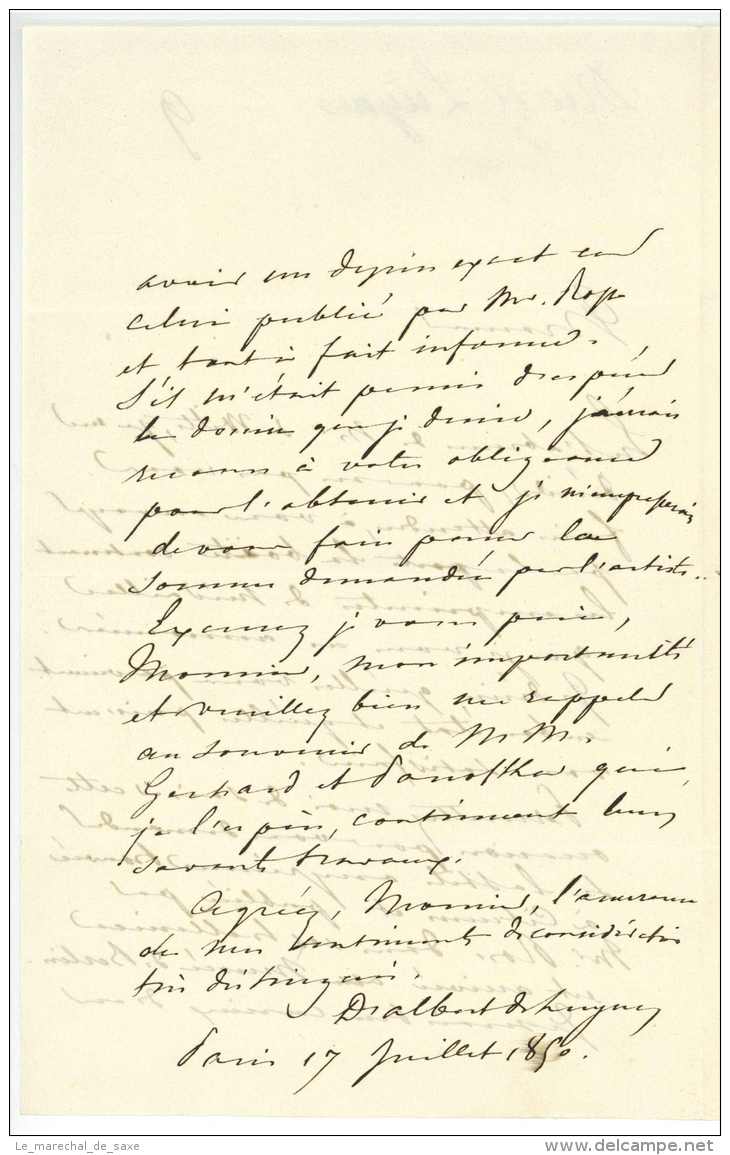 avoir un dessin exact car
celui publié par Mr. Ross
et tout à fait informe.
S'il m'était permis d'espérer
le dessin que je desire, j'aurais
recours à votre obligeance
pour l'obtenir et je m'empresserais
de vous faire passer la
somme demandée par l'artiste..
Excusez je vous prie,
Monsieur, mon importunité
et veuillez bien me rappeler
au souvenir de MM.
Gerhard et Panofka qui,
je l'espère, continuent leurs
savants travaux.
Agréez, Monsieur, l'assurance
de mes sentiments de considération
très distinguée.
D'albert de Luynes
Paris 17 Juillet 1850.
Le_marechal_de_saxe
delcampe.net